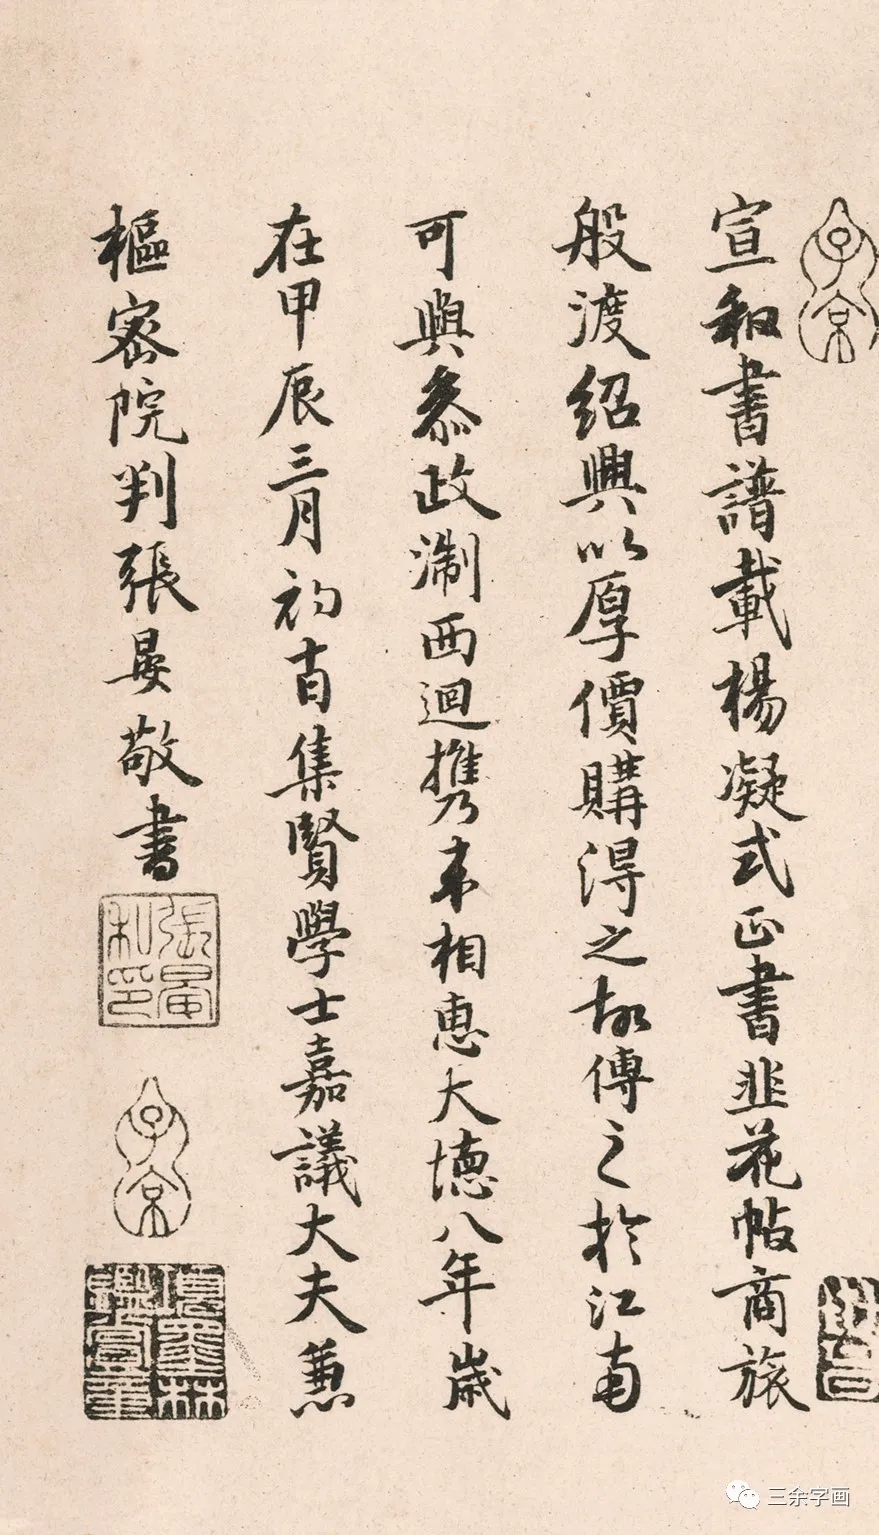 宣和書譜載楊凝式正書韭花帖商旅
般渡紹興以厚價購得之故傳之於江南
可與叅政淛西迴携来相惠大德八年歲
在甲辰三月初十日集賢學士嘉議大夫兼
樞密院判張晏敬書
子京
張晏私印
子京
項墨林鑑賞章
三余字画